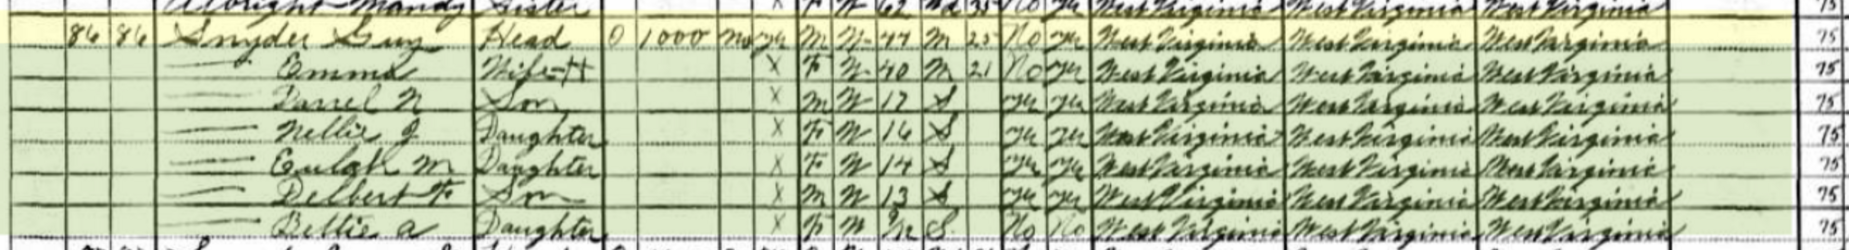 Albright Mandy Sister X F W 62 Wd 35 No Yes West Virginia West Virginia West Virginia 75
86 86 Snyder Guy Head O 1000 No Yes M W 47 M 25 No Yes West Virginia West Virginia West Virginia 75
— Emma Wife-H X F W 40 M 21 No Yes West Virginia West Virginia West Virginia 75
— Darrel N Son X M W 17 S Yes Yes West Virginia West Virginia West Virginia 75
— Nellie J Daughter X F W 16 S Yes Yes West Virginia West Virginia West Virginia 75
— Eulah M Daughter X F W 14 S Yes Yes West Virginia West Virginia West Virginia 75
— Delbert F Son X M W 13 S Yes Yes West Virginia West Virginia West Virginia 75
— Bettie A Daughter X F W S No No West Virginia West Virginia West Virginia 75